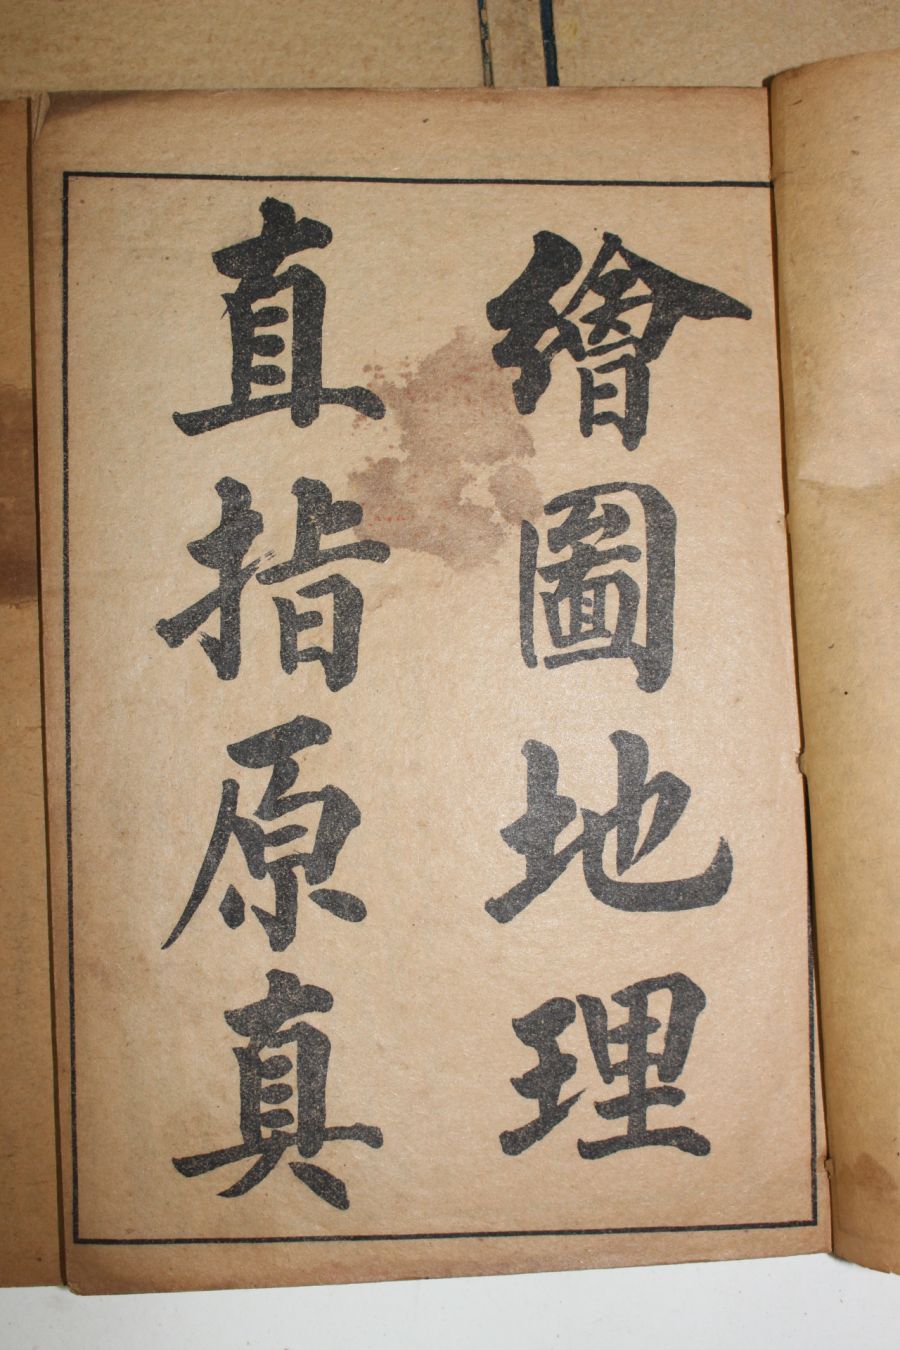 繪圖地理
直指原真